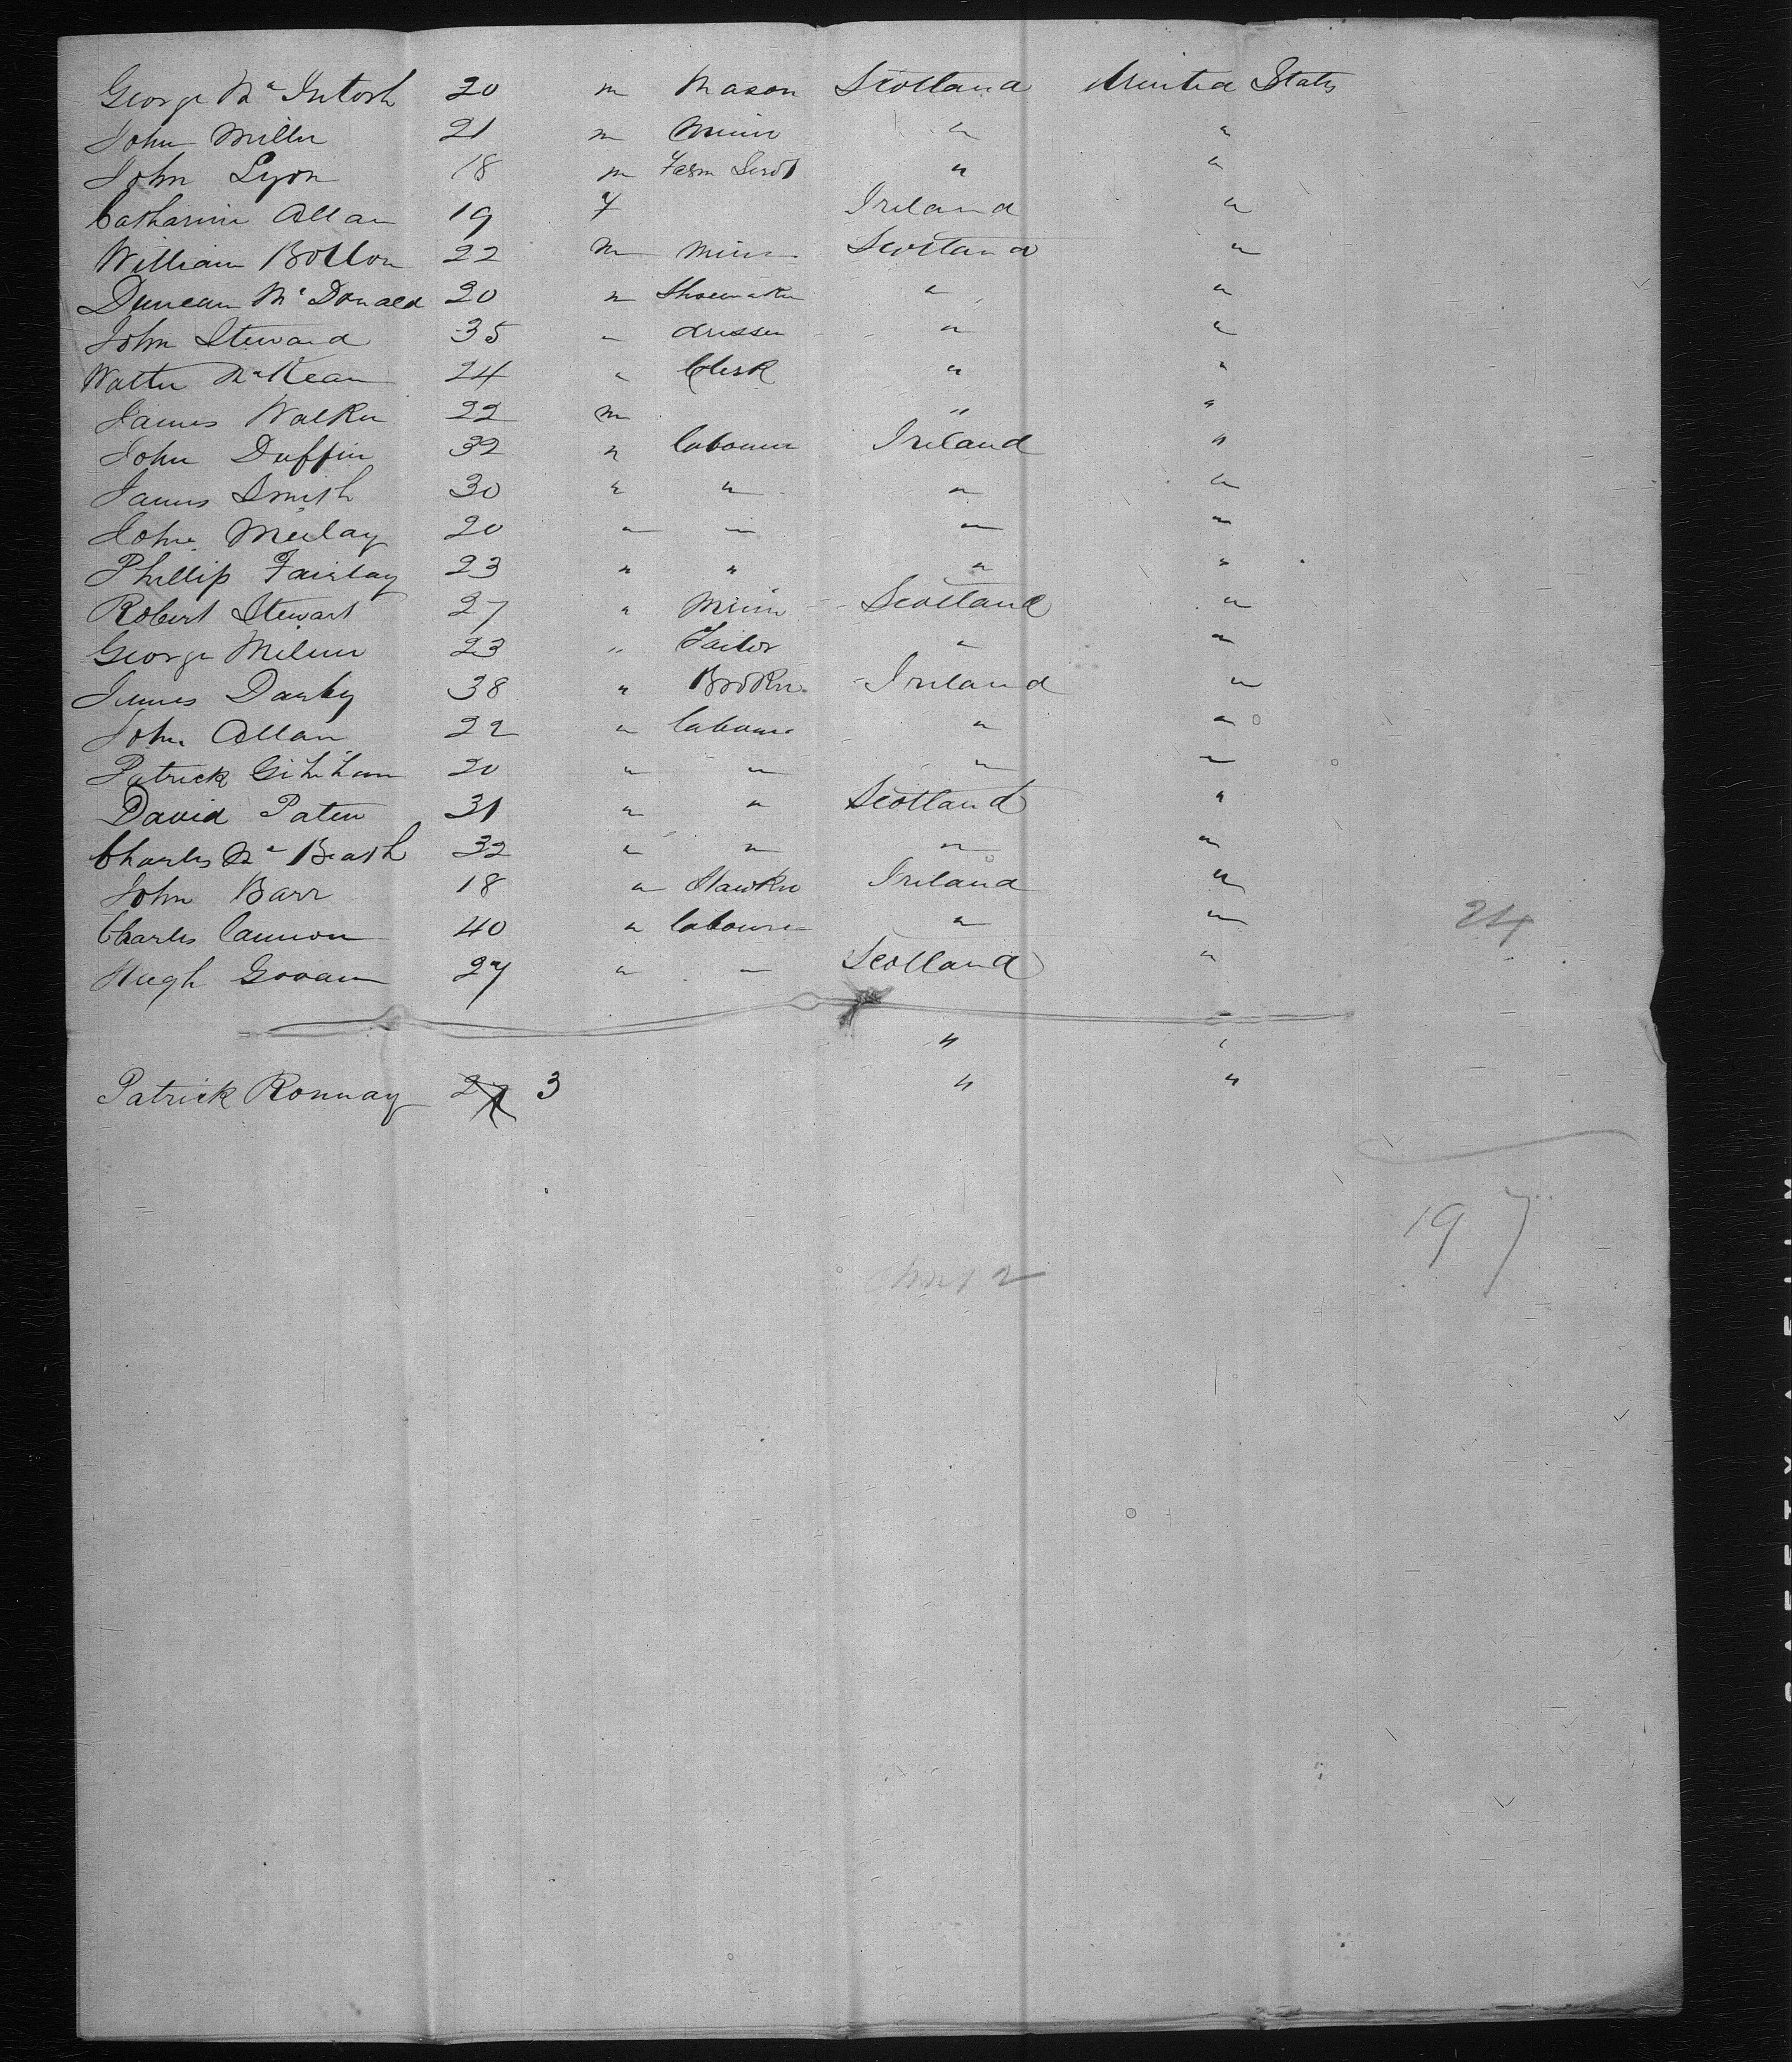 George Mc Intosh 20 m Mason Scotland United States
John Miller 21 m Miner " "
John Lyon 18 m Farm Servt " "
Catharine Allan 19 f Ireland "
William Bolton 22 m Miner Scotland "
Duncan Mc Donald 20 " Shoemaker " "
John Steward 35 " dresser " "
Walter McKean 24 " Clerk " "
James Walker 22 m " "
John Duffin 32 " labourer Ireland "
James Smith 30 " " " "
John 20 " " " "
Phillip Fairlay 23 " " " "
Robert Stewart 27 " Miner Scotland "
George Milne 23 " Tailor " "
James Darby 38 " Broker Ireland "
John Allan 22 " labourer " "
Patrick 20 " " " "
David Paten 31 " " Scotland "
Charles Mc Beath 32 " " " "
John Barr 18 " Hawker Ireland "
Charles Cannon 40 " labourer " " 24
Hugh Govan 27 " " Scotland "
" "
Patrick Ronnay 3 " "
19